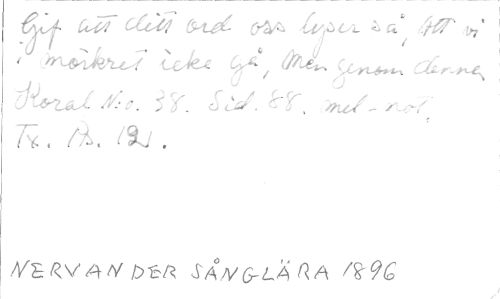 Gif att ditt ord oss lyser så, att vi
i mörkret icke gå, Men genom denna
Koral N:o. 38. Sid. 88. mel-not.
Tx. Ps. 121.
NERVANDER SÅNGLÄRA 1896